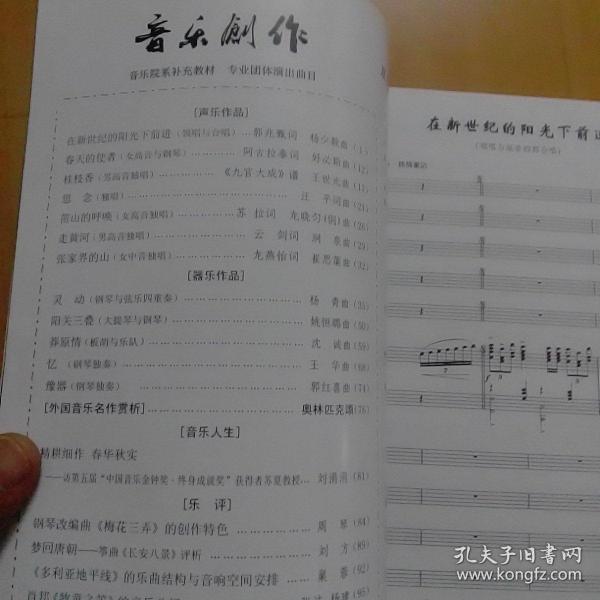 音乐創作
音乐院系补充教材 专业团体演出曲目
[声乐作品]
在新世纪的阳光下前进(领唱与合唱)……郭兆甄词 杨少毅曲(1)
春天的使者(女高音与钢琴)……阿古拉泰词 好必斯曲(12)
桂枝香(男高音独唱)……《九宫大成》谱 王世光曲(11)
思 念(独唱)……汪 平词曲(21)
雷山的呼唤(女高音独唱)……苏 拉词 龙晓匀(侗)曲(26)
走黄河(男高音独唱)……云 剑词 曲(29)
张家界的山(女中音独唱)……龙燕怡词 崔思蕖曲(32)
[器乐作品]
灵 动(钢琴与弦乐四重奏)……杨 青曲(35)
阳关三叠(大提琴与钢琴)……姚恒璐曲(50)
莽原情(板胡与乐队)……沈 诚曲(59)
忆 (钢琴独奏)……王 华曲(68)
豫器(钢琴独奏)……郭红喜曲(74)
[外国音乐名作赏析]……奥林匹克颂(76)
[音乐人生]
精耕细作 春华秋实
——访第五届“中国音乐金钟奖·终身成就奖”获得者苏夏教授…刘涓涓(81)
[乐 评]
钢琴改编曲《梅花三弄》的创作特色……周 琴(84)
梦回唐朝——筝曲《长安八景》评析……刘 方(89)
《多利亚地平线》的乐曲结构与音响空间安排……巢 蓉(92)
杨建(95)
在新世纪的阳光下前进
孔夫子旧书网
www.kongfz.com